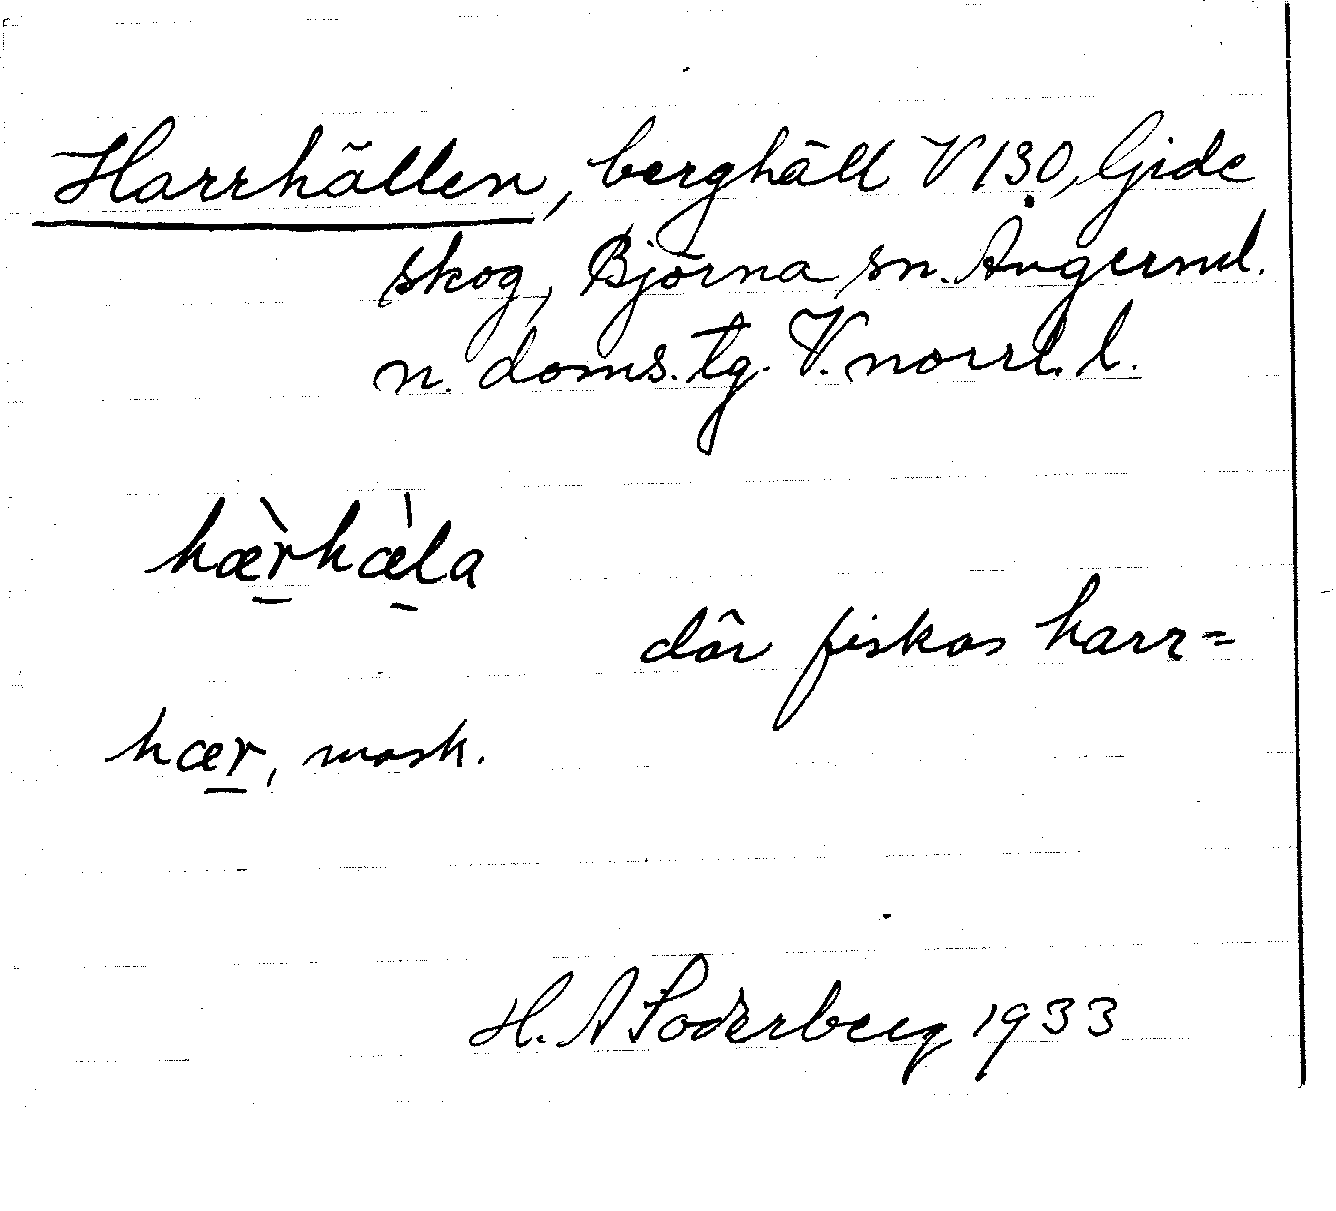 Harrhällen, berghäll V 130, Gide
skog, Björna sn. Ångerml.
n. doms. tg. V. norrl. l.
hæ̀rhæ̀la
där fiskas harr=
hær, mask.
H. A Söderberg 1933